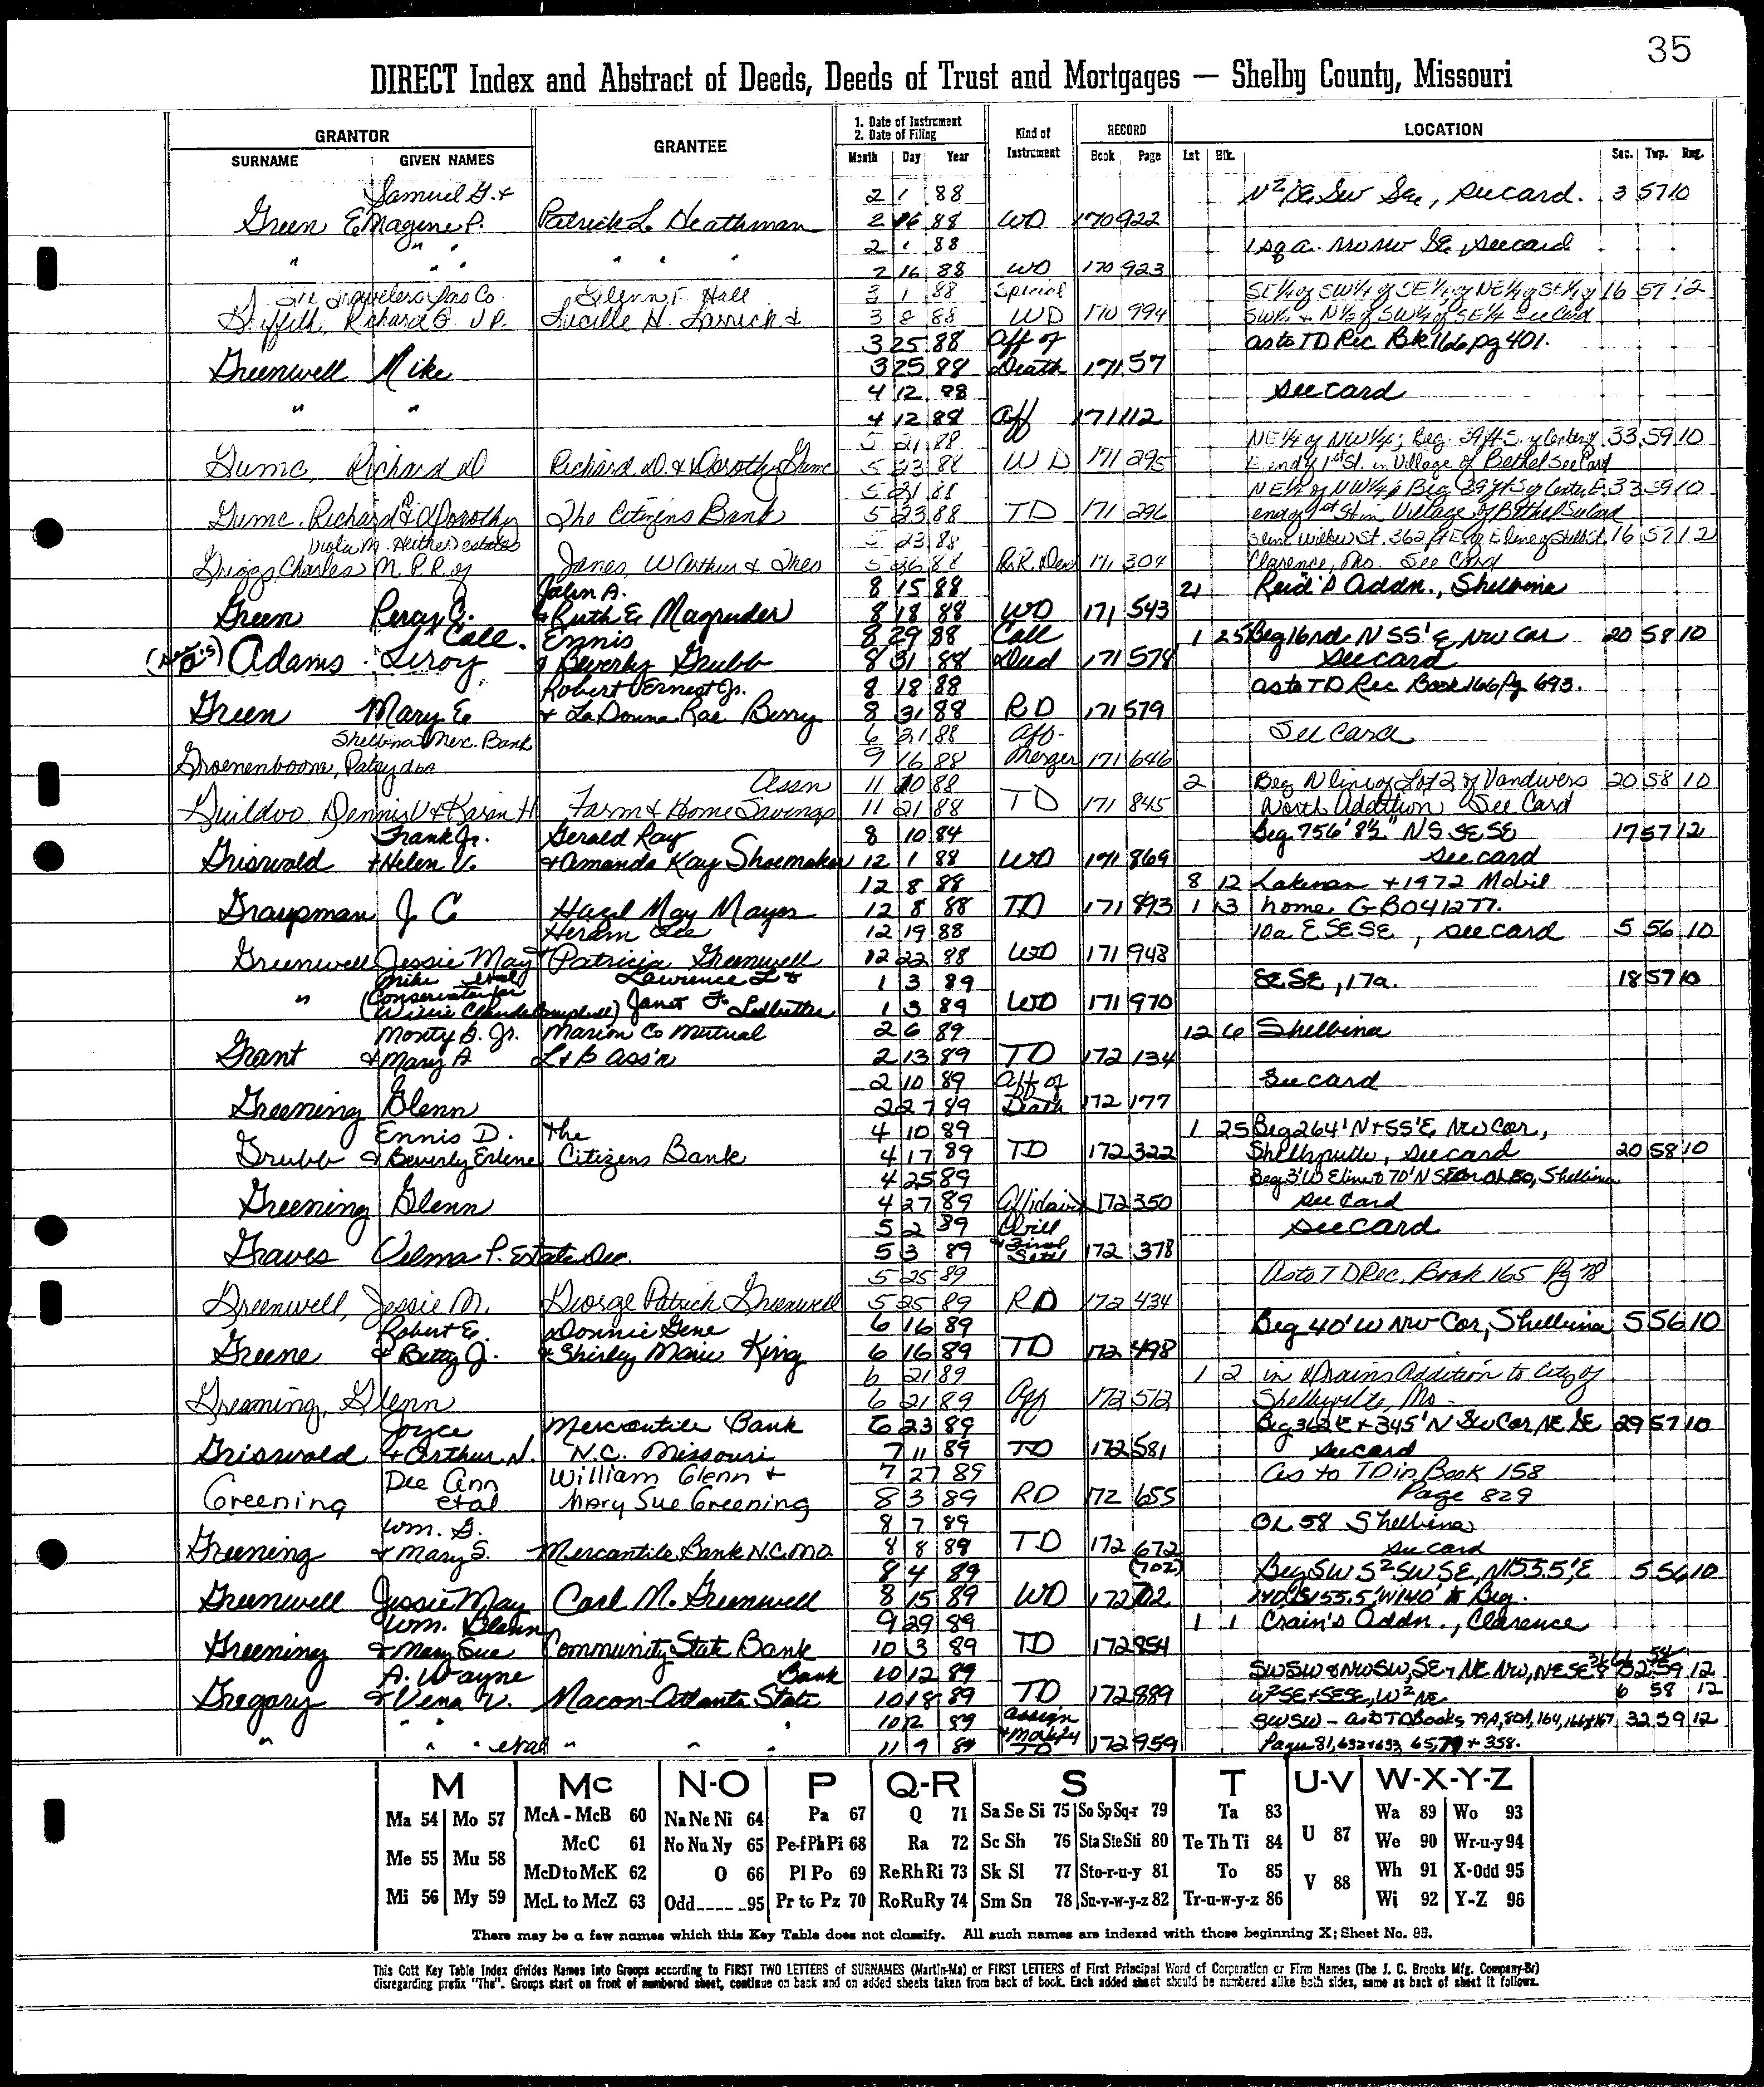 35
DIRECT Index and Abstract of Deeds, Deeds of Trust and Mortgages — Shelby County, Missouri
GRANTOR
SURNAME GIVEN NAMES
GRANTEE
1. Date of Instrument
2. Date of Filing
Month Day Year
Kind of Instrument
RECORD
Book Page
LOCATION
Lot Blk. Sec. Twp. Rng.
Samuel G. & 2 1 88 See card. 3 57 10
Green Emagene P. Patrick L. Heathman 2 16 88 WD 170 922
" " 2 1 88 1 sq a. NW NW SE, see card
" " " " " 2 16 88 WD 170 923
Travelers Ins Co. Glenn F. Hall 3 1 88 Special 16 57 12
Griffith, Richard G. V P. Lucille H. Larrick & 3 8 88 WD 170 994 SW¼ & N½ of SW¼ of SE¼ See Card
3 25 88 Aff of as to TD Rec Bk 166 pg 401.
Greenwell Mike 3 25 88 Death 171 57
4 12 88 see card
" " 4 12 88 Aff 171 112
5 21 88 NE¼ of NW¼; Beg. 39 ft S. of Center of 33 59 10
Gume, Richard D Richard D. & Dorothy Gume 5 23 88 WD 171 295 E end of 1st St. in Village of Bethel See Card
5 21 88 NE¼ of NW¼; Beg 39 ft S of Center E 33 59 10
Gume, Richard D & Dorothy The Citizens Bank 5 23 88 TD 171 296 end of 1st St in Village of Bethel See Card
5 23 88 16 57 12
Griggs, Charles M. P.R. of Janes, W Arthur & Theo 88 171 304 Clarence, Mo. See Card
John A. 8 15 88 21 Reid's Addn., Shelbina
Green Leroy C. & Ruth E. Magruder 8 18 88 WD 171 543
Coll. Ennis 8 29 88 Coll 1 25 Beg 16 rds N 55' E, NW Cor 20 58 10
Adams Leroy & Beverly Grubb 8 31 88 Deed 171 578 see card
Robert Vernest Jr. 8 18 88 as to TD Rec Book 166 Pg 693.
Green Mary E. & LaDonna Rae Berry 8 31 88 RD 171 579
Shelbina Merc. Bank 6 21 88 Aff. See Card
Groenenboom, Patsy dba 9 16 88 Merger 171 646
Assn 11 10 88 2 Beg N line of Lot 2 of Vandivers 20 58 10
Guildoo, Dennis V & Karen H Farm & Home Savings 11 21 88 TD 171 845 North Addition See Card
Frank Jr. Gerald Ray 8 10 84 Beg 756' 8½" N S SE SE 17 57 12
Griswold & Helen V. & Amanda Kay Shoemaker 12 1 88 WD 171 869 see card
12 8 88 8 12 Lakenan & 1972 Mobil
Graupman J C Hazel May Mayes 12 8 88 TD 171 893 1 13 home GB041277.
Heram Lee 12 19 88 10a E SE SE, see card 5 56 10
Greenwell Jessie May & Patricia Greenwell 12 22 88 WD 171 948
Mike etal Lawrence L & 1 3 89 SE SE, 17a. 18 57 10
" (Conservator for Willie Claude Campbell) Janet F. Ledbetter 1 3 89 WD 171 970
Monty B. Jr. Marion Co Mutual 2 6 89 12 6 Shelbina
Grant & Mary A L & B Ass'n 2 13 89 TD 172 134
2 10 89 Aff of See card
Greening Glenn 2 27 89 Death 172 177
Ennis D. The 4 10 89 1 25 Beg 264' N + 55' E, NW Cor,
Grubb & Beverly Erlene Citizens Bank 4 17 89 TD 172 322 Shelbyville, see card 20 58 10
4 25 89 Beg 3' W E line & 70' N OL 50, Shelbina
Greening Glenn 4 27 89 Affidavit 172 350 see card
5 2 89 Will see card
Graves Velma P. Estate Dec. 5 3 89 & Final Settl 172 378
5 25 89 As to TD Rec. Book 165 Pg 78
Greenwell, Jessie M. George Patrick Greenwell 5 25 89 RD 172 434
Robert E. Donnie Gene 6 16 89 Beg 40' W NW Cor, Shelbina 5 56 10
Greene & Betty J. & Shirley Marie King 6 16 89 TD 172 498
6 21 89 1 2 in Drains Addition to City of
Greening, Glenn 6 21 89 Aff 172 512 Shelbyville, Mo.
Joyce Mercantile Bank 6 23 89 Beg 362' E + 345' N SW Cor, NE SE 29 57 10
Griswold & Arthur N. N.C. Missouri 7 11 89 TD 172 581 see card
Dee Ann William Glenn & 7 27 89 As to TD in Book 158
Greening etal Mary Sue Greening 8 3 89 RD 172 655 Page 829
Wm. G. 8 7 89 OL 58 Shelbina
Greening & Mary S. Mercantile Bank N.C. MO. 8 8 89 TD 172 672 see card
8 4 89 (702) Beg SW S² SW SE, N 155.5', E 5 56 10
Greenwell Jessie May Carl M. Greenwell 8 15 89 WD 172 702 140', S 155.5', W 140' to Beg.
Wm. Glenn 9 29 89 1 1 Crain's Addn., Clarence
Greening & Mary Sue Community State Bank 10 3 89 TD 172 854
A. Wayne Bank 10 12 89 SW SW & NW SW, SE + NE NW, NE SE 32 59 12
Gregory & Vena V. Macon-Atlanta State 10 18 89 TD 172 889 W² SE + SE SE, W² NE 6 58 12
" " " 10 2 89 Assign SW SW - as to TD Books 79A, 80A, 164, 166 & 167 32 59 12
" " " etal " " " 11 9 89 & Modify TD 172 959 Pages 81, 632 & 633, 65, 79 + 358.
M Mc N-O P Q-R S T U-V W-X-Y-Z
Ma 54 Mo 57 McA - McB 60 Na Ne Ni 64 Pa 67 Q 71 Sa Se Si 75 So Sp Sq-r 79 Ta 83 U 87 Wa 89 Wo 93
McC 61 No Nu Ny 65 Pe-f Ph Pi 68 Ra 72 Sc Sh 76 Sta Ste Sti 80 Te Th Ti 84 We 90 Wr-u-y 94
Me 55 Mu 58 McD to McK 62 O 66 Pl Po 69 Re Rh Ri 73 Sk Sl 77 Sto-r-u-y 81 To 85 V 88 Wh 91 X-Odd 95
Mi 56 My 59 McL to McZ 63 Odd 95 Pr to Pz 70 Ro Ru Ry 74 Sm Sn 78 Su-v-w-y-z 82 Tr-u-w-y-z 86 Wi 92 Y-Z 96
There may be a few names which this Key Table does not classify. All such names are indexed with those beginning X; Sheet No. 95.
This Cott Key Table Index divides Names into Groups according to FIRST TWO LETTERS of SURNAMES (Martin-Ma) or FIRST LETTERS of First Principal Word of Corporation or Firm Names (The J. C. Brooks Mfg. Company-Br)
disregarding prefix "The". Groups start on front of numbered sheet, continue on back and on added sheets taken from back of book. Each added sheet should be numbered alike both sides, same as back of sheet it follows.